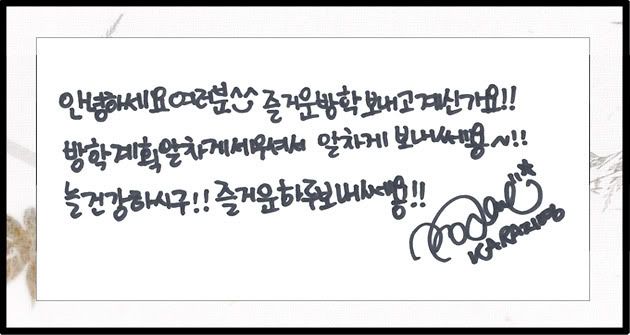 안녕하세요 여러분^^ 즐거운 방학 보내고 계신가요!!
방학계획 알차게 세우셔서 알차게 보내세용~!!
늘 건강하시구!! 즐거운 하루 보내세용!!
KARA